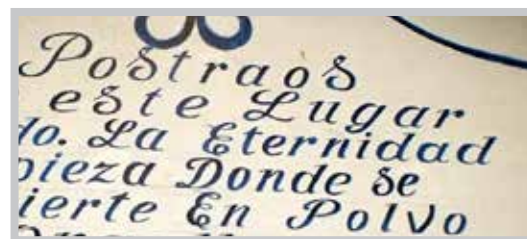 Postraos
este Lugar
do. La Eternidad
pieza Donde Se
ierte En Polvo